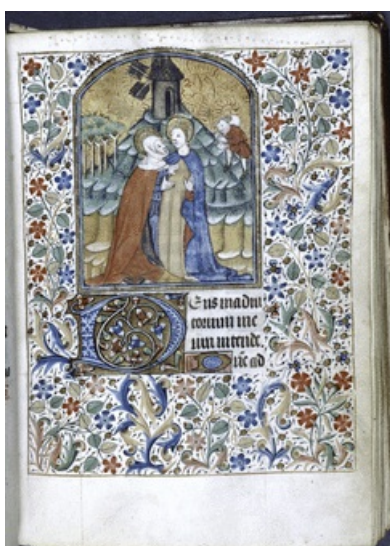 Deus in adiu
torium me
um intende.
ne ad